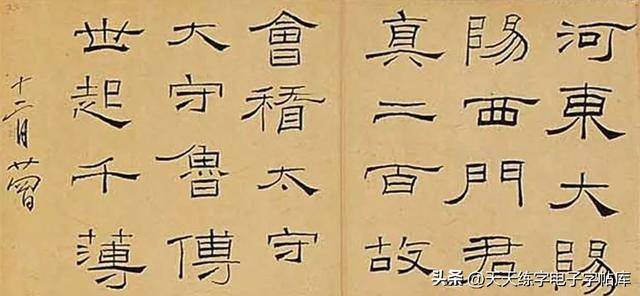 河東大陽
陽西門君
真二百故
會稽太守
大守魯傅
世起千薄
十二月
头条 @天天练字电子字帖库